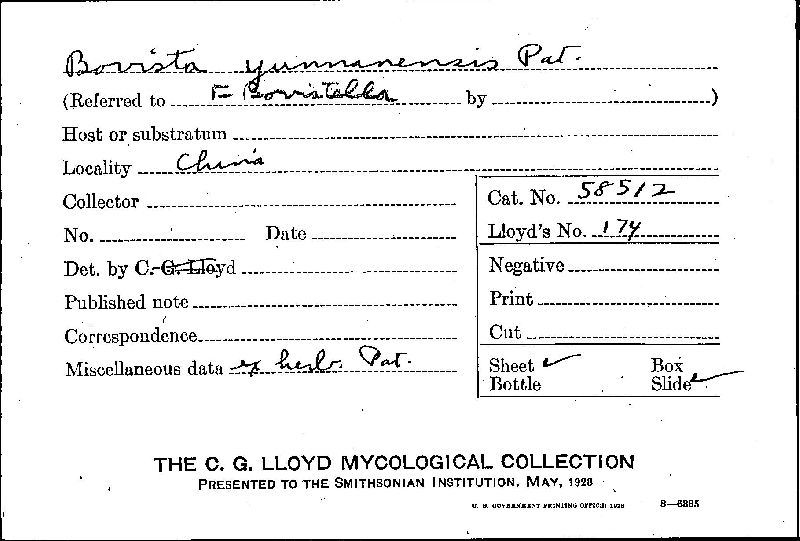 Bovista yunnanensis Pat.
(Referred to F Bovistella by )
Host or substratum
Locality China
Collector
No. Date
Det. by C. G. Lloyd
Published note
Correspondence
Miscellaneous data ex herb. Pat.
Cat. No. 58512
Lloyd's No. 174
Negative
Print
Cut
Sheet ✓ Box
Bottle Slide ✓
THE C. G. LLOYD MYCOLOGICAL COLLECTION
PRESENTED TO THE SMITHSONIAN INSTITUTION, MAY, 1928
U. S. GOVERNMENT PRINTING OFFICE: 1928 8—6885